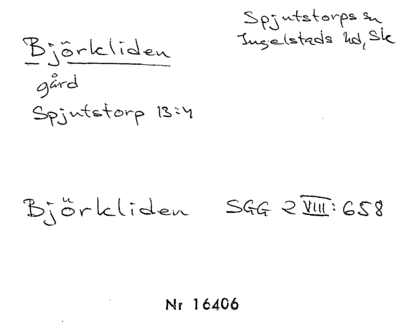 Björkliden
Spjutstorps sn
Ingelstads hd, Sk
gård
Spjutstorp 13:4
Björkliden SGG 2 VIII: 658
Nr 16406